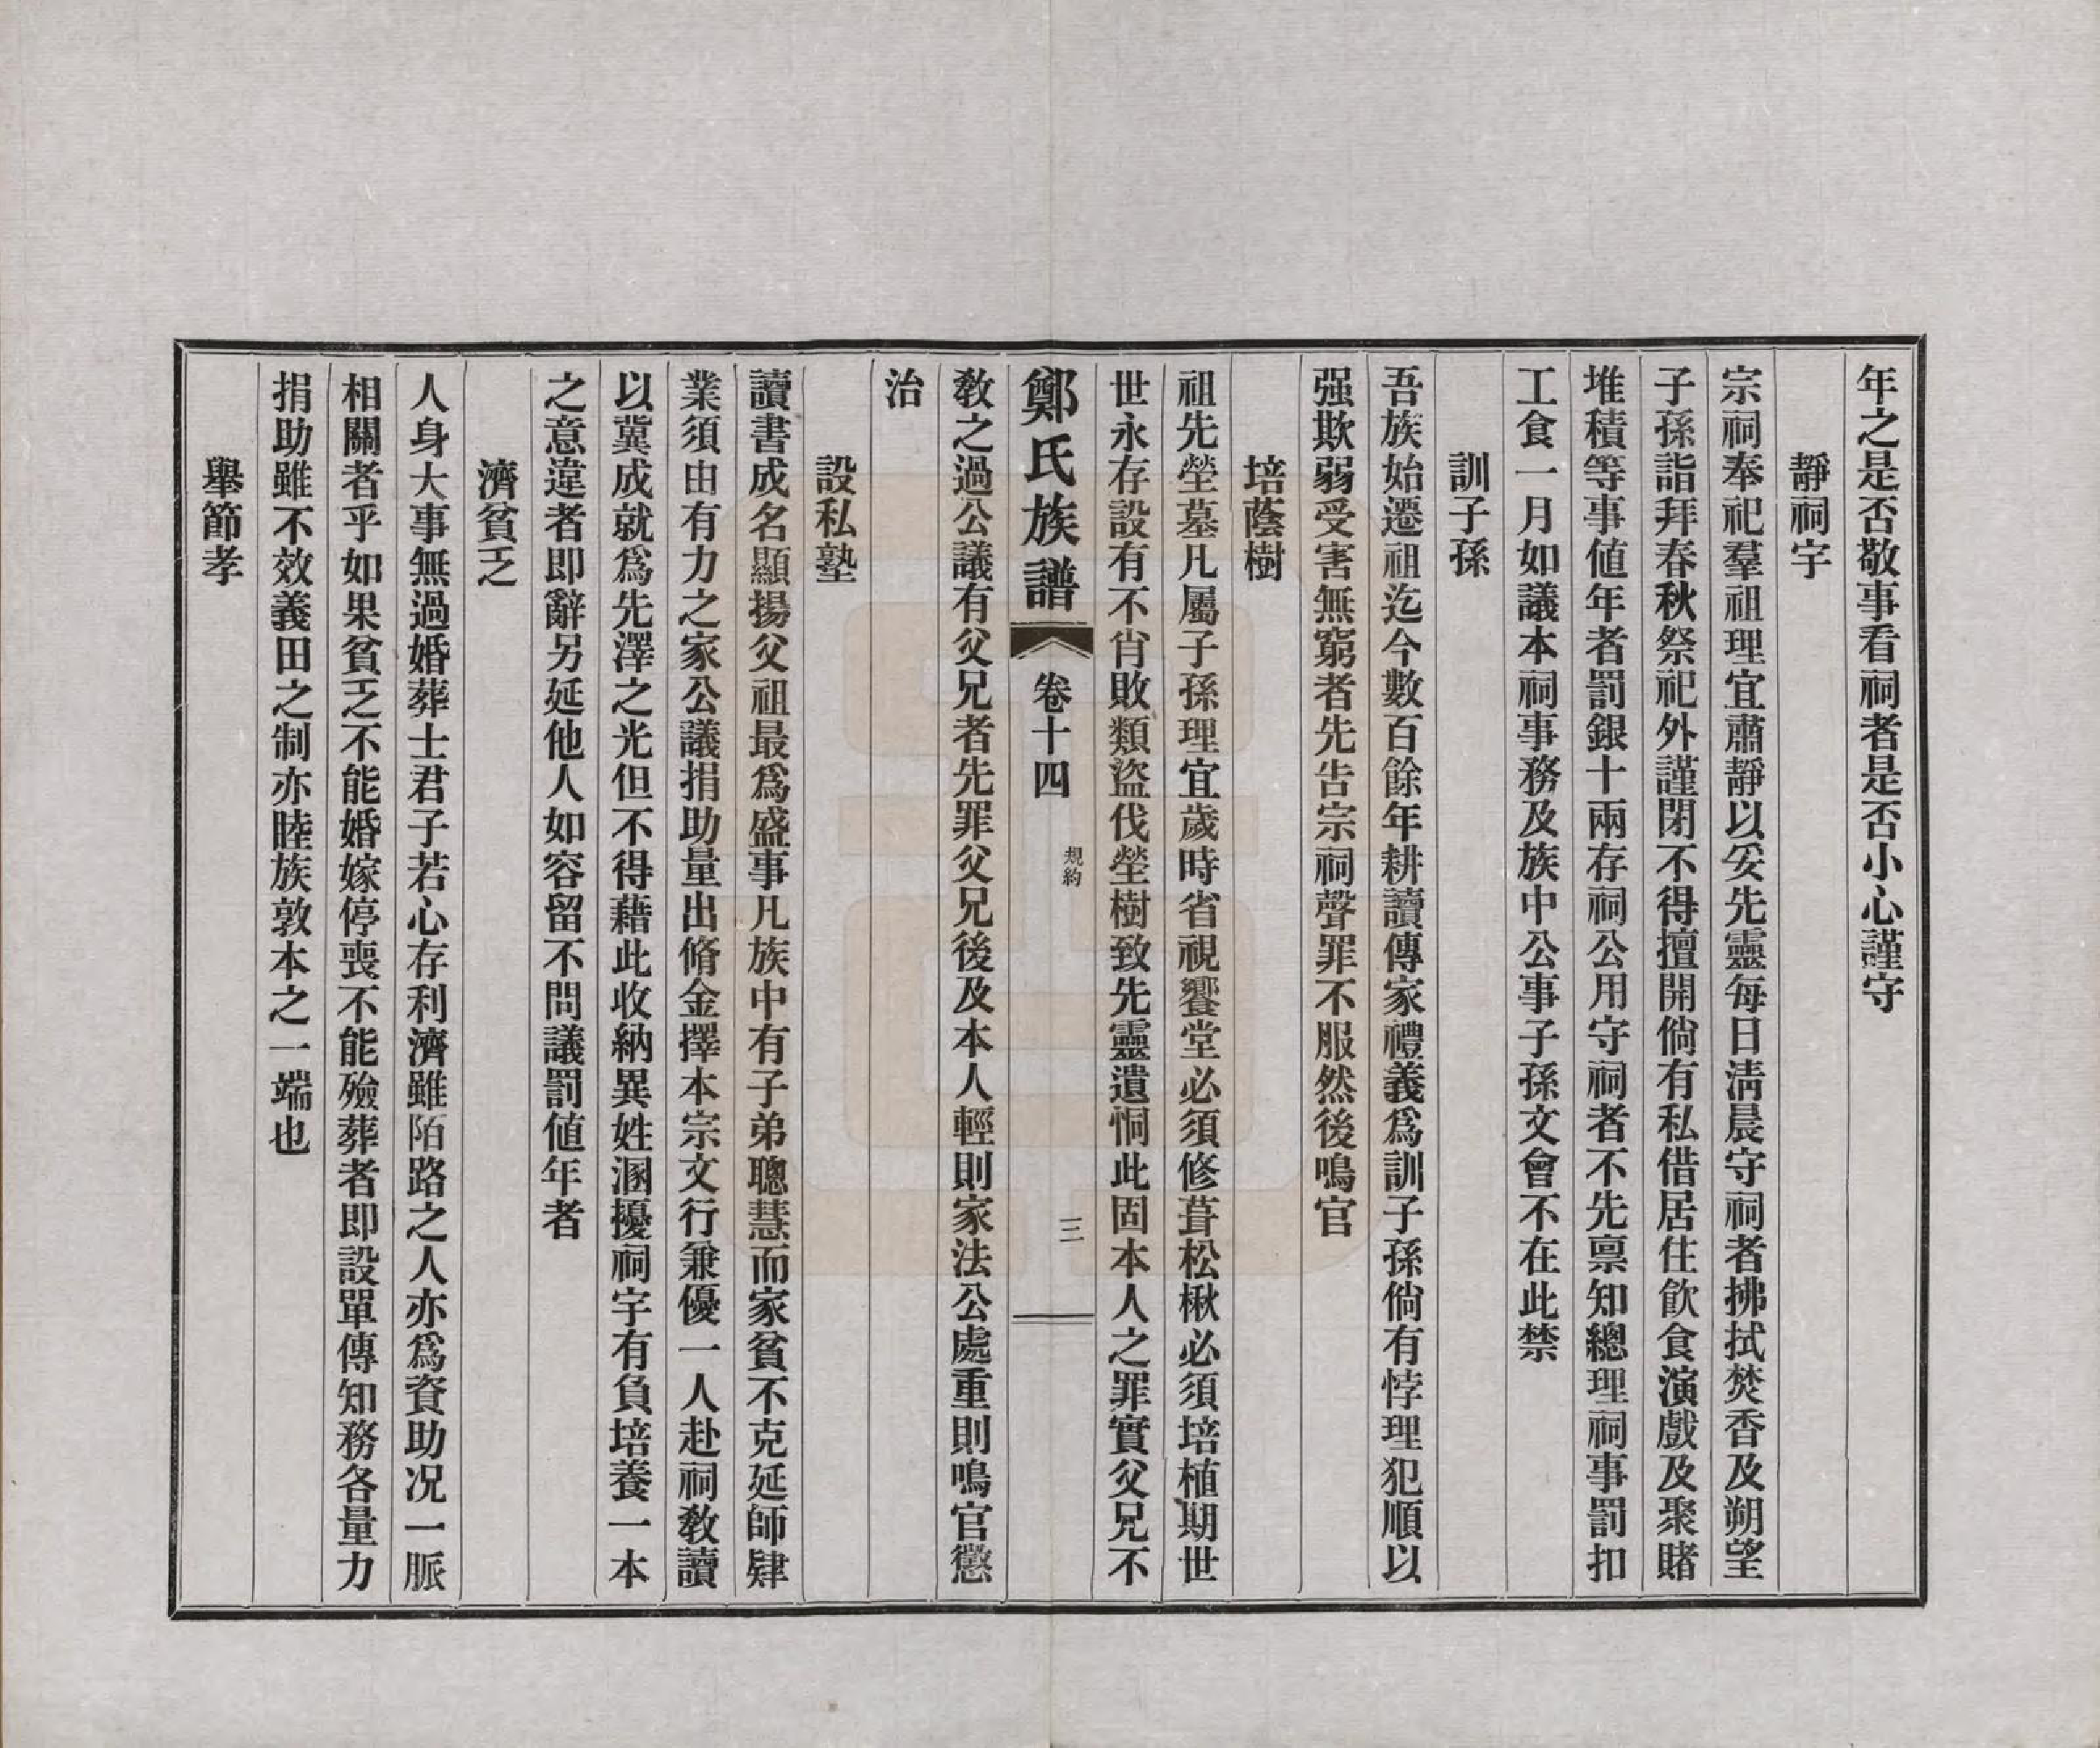 年之是否敬事看祠者是否小心謹守
靜祠宇
宗祠奉祀羣祖理宜肅靜以妥先靈每日淸晨守祠者拂拭焚香及朔望
子孫詣拜春秋祭祀外謹閉不得擅開倘有私借居住飮食演戲及聚賭
堆積等事値年者罰銀十兩存祠公用守祠者不先禀知總理祠事罰扣
工食一月如議本祠事務及族中公事子孫文會不在此禁
訓子孫
吾族始遷祖迄今數百餘年耕讀傳家禮義爲訓子孫倘有悖理犯順以
强欺弱受害無窮者先吿宗祠聲罪不服然後鳴官
培蔭樹
祖先塋墓凡屬子孫理宜歲時省視饗堂必須修葺松楸必須培植期世
世永存設有不肖敗類盜伐塋樹致先靈遺恫此固本人之罪實父兄不
鄭氏族譜
卷十四
規約
三
敎之過公議有父兄者先罪父兄後及本人輕則家法公處重則鳴官懲
治
設私塾
讀書成名顯揚父祖最爲盛事凡族中有子弟聰慧而家貧不克延師肄
業須由有力之家公議捐助量出脩金擇本宗文行兼優一人赴祠敎讀
以冀成就爲先澤之光但不得藉此收納異姓溷擾祠宇有負培養一本
之意違者即辭另延他人如容留不問議罰値年者
濟貧乏
人身大事無過婚葬士君子若心存利濟雖陌路之人亦爲資助况一脈
相關者乎如果貧乏不能婚嫁停喪不能殮葬者即設單傳知務各量力
捐助雖不效義田之制亦睦族敦本之一端也
舉節孝